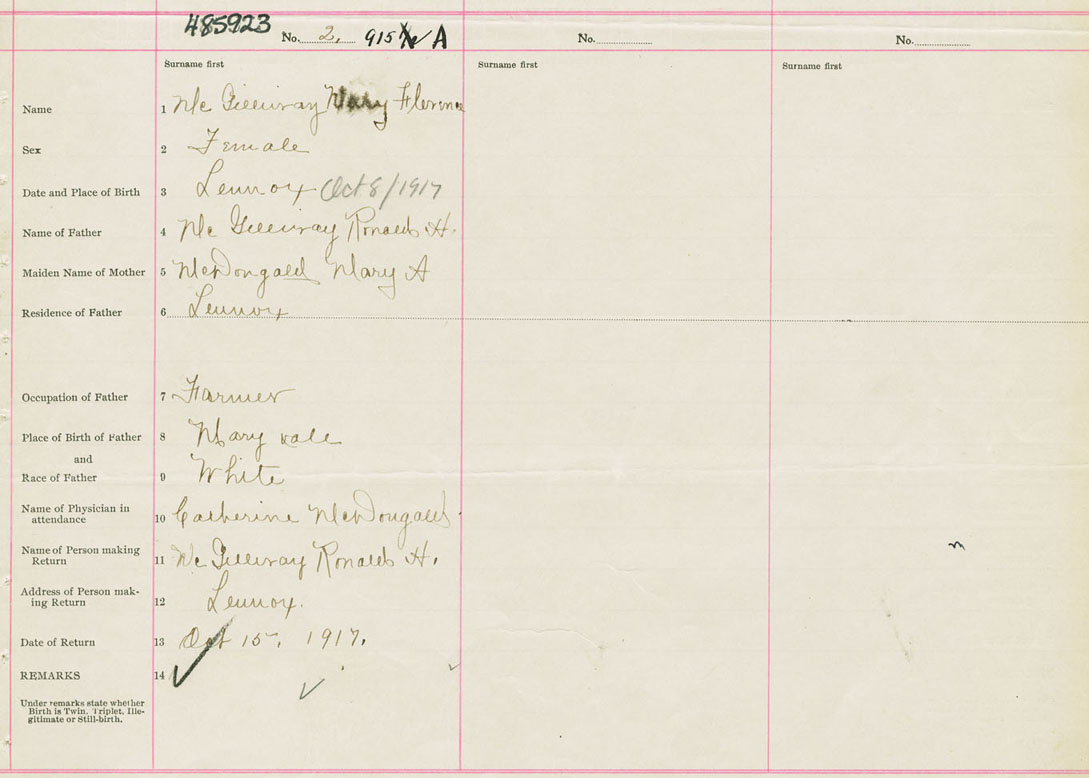 485923
No. 2. 915 A
No.
No.
Surname first
Surname first
Surname first
Name 1 Mc Gillivray Mary Florence
Sex 2 Female
Date and Place of Birth 3 Lennox Oct 8/1917
Name of Father 4 Mc Gillivray Ronald H.
Maiden Name of Mother 5 McDougald Mary A
Residence of Father 6 Lennox
Occupation of Father 7 Farmer
Place of Birth of Father 8 Mary vale
and
Race of Father 9 White
Name of Physician in
attendance 10 Catherine McDougald
Name of Person making
Return 11 Mc Gillivray Ronald H.
Address of Person mak-
ing Return 12 Lennox.
Date of Return 13 Oct 15, 1917.
REMARKS 14
Under remarks state whether
Birth is Twin, Triplet, Ille-
gitimate or Still-birth.